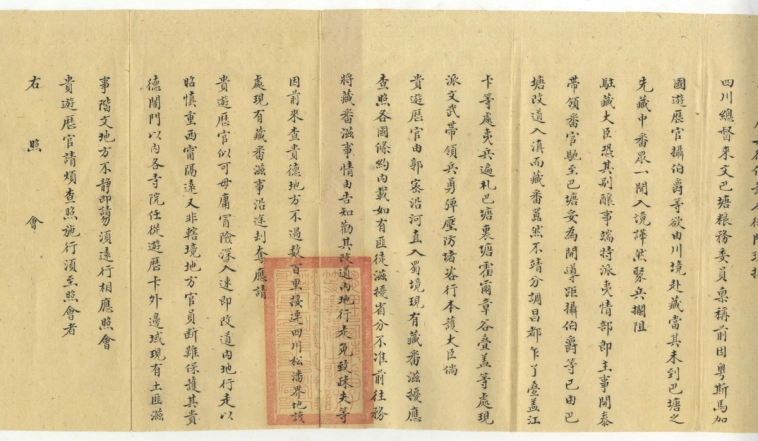 四川總督來文巴塘糧務委員稟稱前因粵斯馬加
國遊歷官攝伯爵等欲由川境赴藏當其未到巴塘之
先藏中番眾一聞入境譁然聚兵攔阻
駐藏大臣恐其别釀事端特派夷情部郎主事開泰
帶領番官馳至巴塘妥為開導詎攝伯爵等已由巴
塘改道入滇而藏番囂然不靖分調昌都乍丫壘蓋江
卡等處夷兵遍札巴塘裏塘霍爾章谷壘盖等處現
派文武帶領兵勇彈壓防堵咨行本護大臣倘
貴遊歷官由郭密沿河直入蜀境現有藏番滋擾應
查照各國條約內載如有匪徒滋擾省分不准前往務
將藏番滋事情由告知勸其改道內地行走免致疎失等
因前來查貴德地方不過數百里接連四川松潘界地該
處現有藏番滋事沿途刦奪應請
貴遊歷官似可毋庸冒險深入速即改道內地行走以
昭慎重西甯隔遠又非轄境地方官員断難保護其貴
德關門以內各寺院任從遊歷卡外邊域現有土匪滋
事階文地方不靜即須遠行相應照會
貴遊歷官請煩查照施行須至照會者
右照會